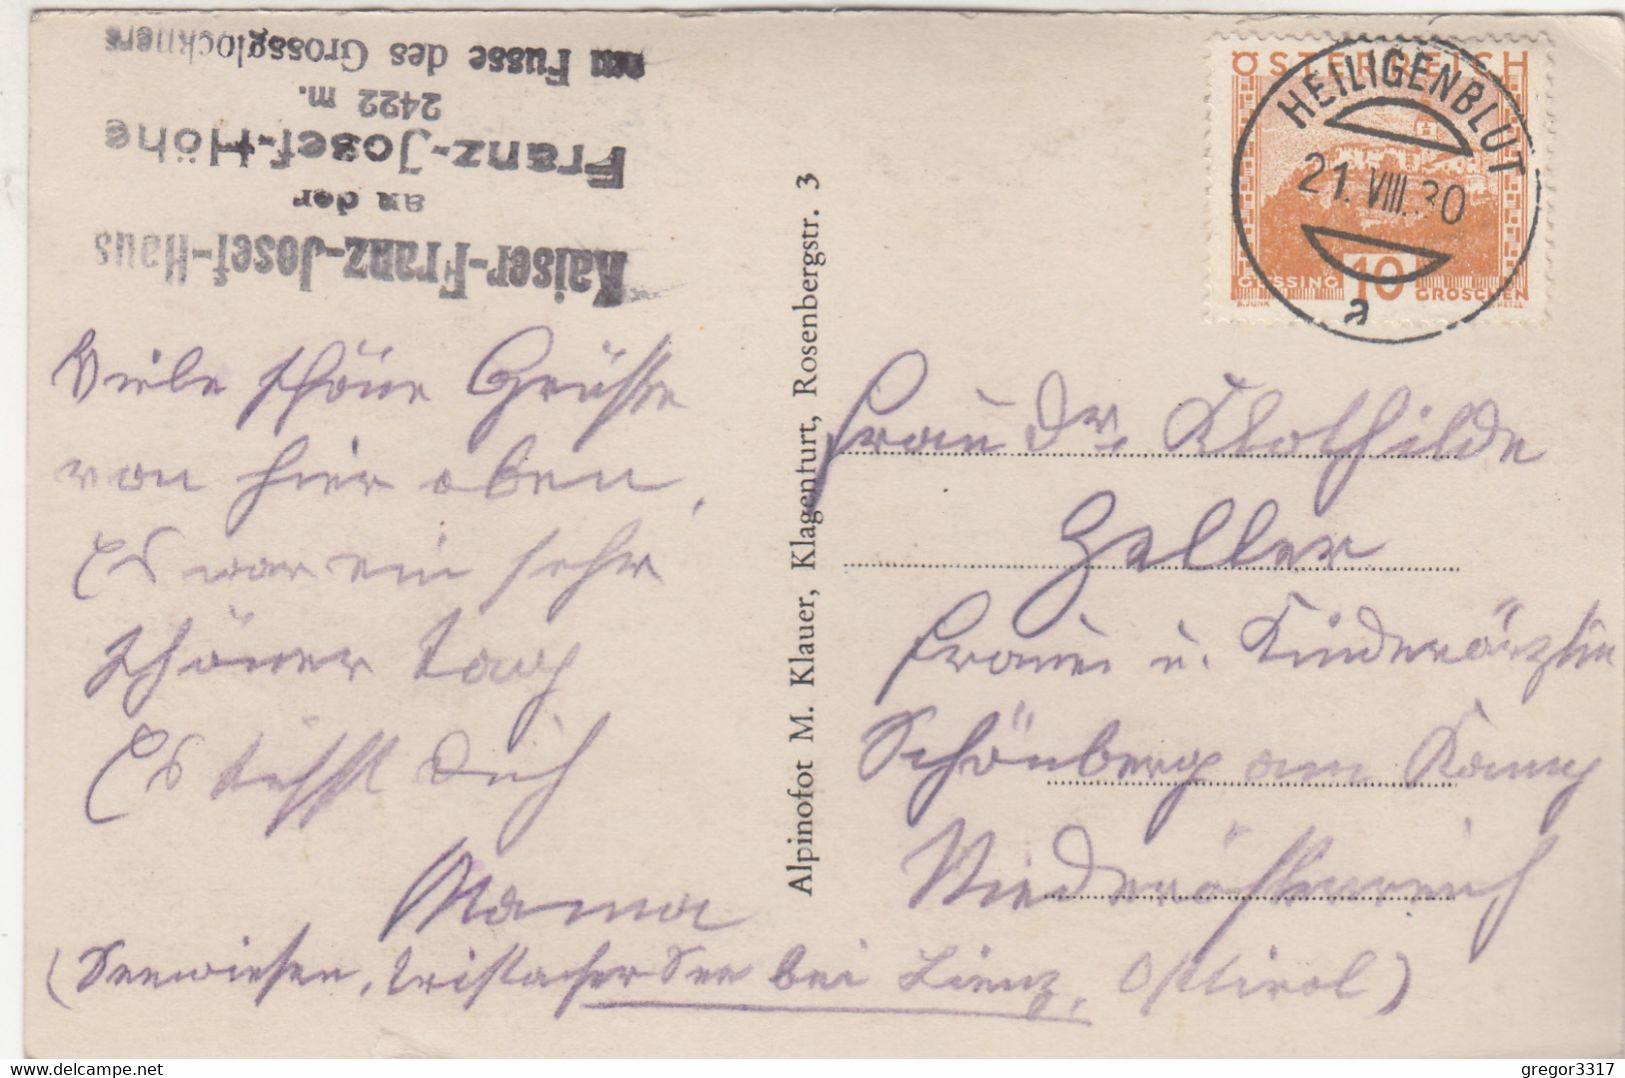 Kaiser-Franz-Josef-Haus
an der
Franz-Josef-Höhe
2422 m.
am Fusse des Grossglockners
ÖSTERREICH
HEILIGENBLUT
21.VIII.30
a
GÜSSING 10 GROSCHEN
Viele schöne Grüsse
von hier oben,
Es war ein sehr
schöner Tag
Es küsst Dich
Mama
(Seewiese, Tristacher See bei Lienz, Osttirol)
Alpinofot M. Klauer, Klagenfurt, Rosenbergstr. 3
Frau Dr. Klothilde
Zeller
Frauen u. Kinderärztin
Schönberg am Kamp
Niederösterreich
gregor3317